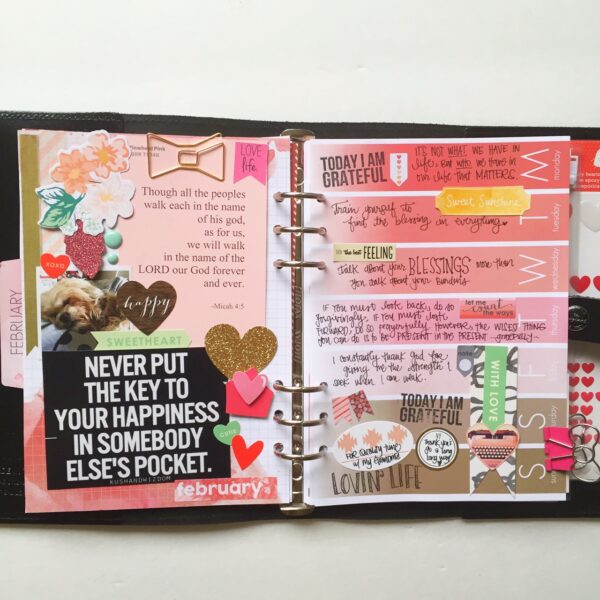 FEBRUARY
LOVE
life.
Though all the peoples
walk each in the name
of his god,
as for us,
we will walk
in the name of the
LORD our God forever
and ever.
-Micah 4:5
xoxo
happy
SWEETHEART
NEVER PUT
THE KEY TO
YOUR HAPPINESS
IN SOMEBODY
ELSE'S POCKET.
KUSHANDWIZDOM
cutie
february
TODAY I AM
GRATEFUL
IT'S NOT WHAT WE HAVE IN
life, BUT WHO we have in
our life that MATTERS.
M
monday
Sweet Sunshine
Train yourself to
find the blessing in everything
T
the best FEELING
Talk about your BLESSINGS more than
you talk about your burdens.
W
let me
count
the ways
IF YOU MUST look back, do so
forgivingly. IF YOU MUST look
FORWARD, DO SO prayerfully. However, the WISEST THING
you can do is to BE PRESENT IN the PRESENT gracefully
T
I constantly thank God for
giving me the strength I
seek when I am weak.
F
friday
WITH LOVE
TODAY I AM
GRATEFUL
FOR QUALITY TIME
w/ my
thank you's
go a long
long way
S
LOVIN' LIFE
S